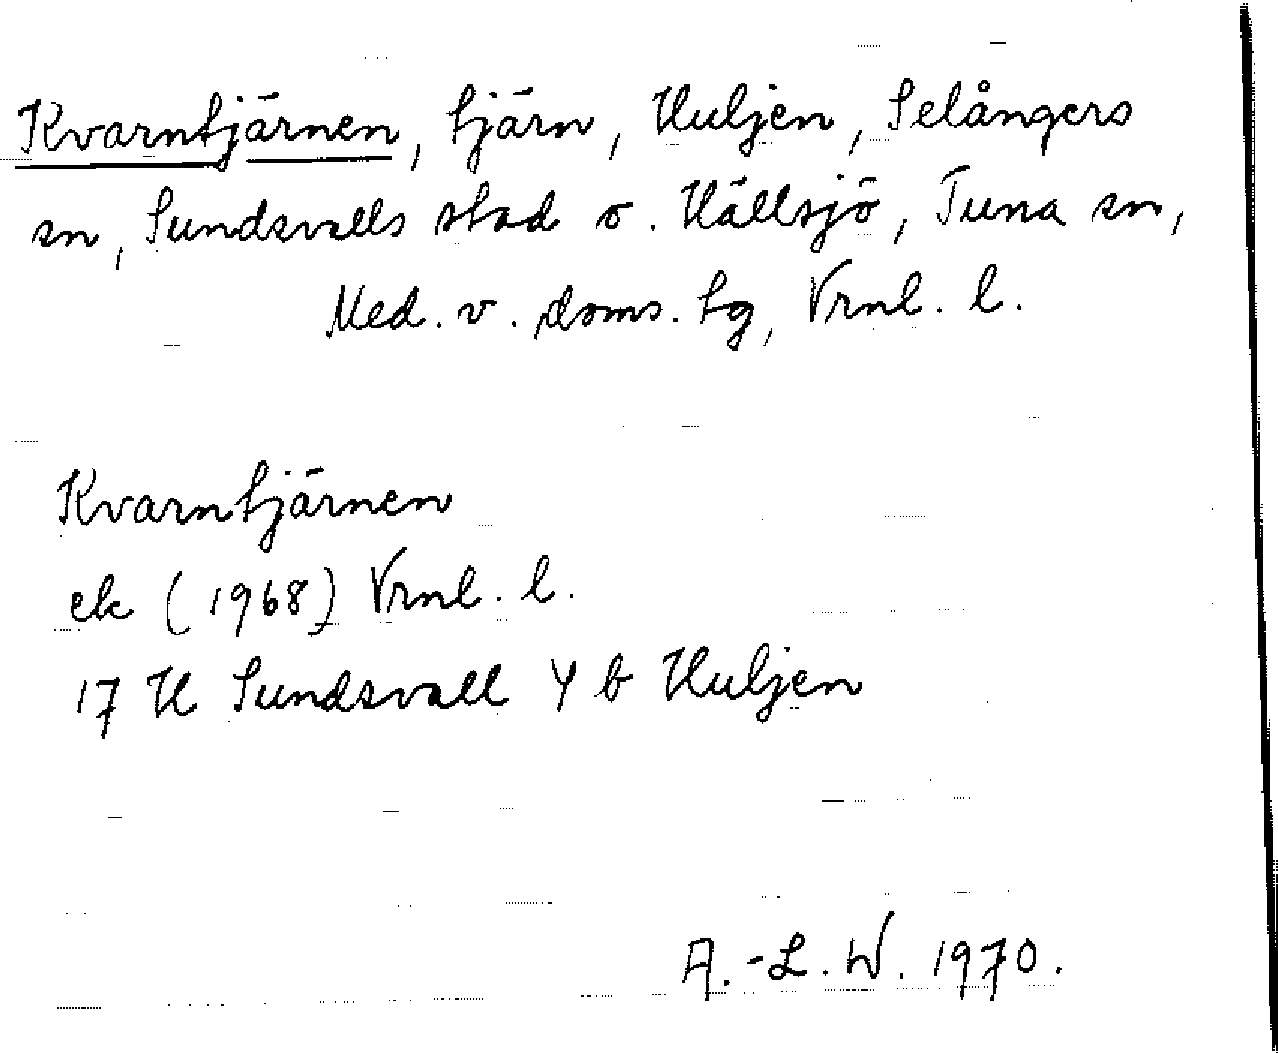 Kvarntjärnen, tjärn, Huljen, Selångers
sn, Sundsvalls stad o. Hällsjö, Tuna sn,
Med. v. doms. tg, Vrnl. l.
Kvarntjärnen
ek (1968) Vrnl. l.
17 H Sundsvall 4 b Huljen
A.-L. W. 1970.